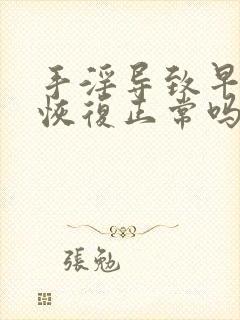 手淫导致早
恢復正常吗
張勉